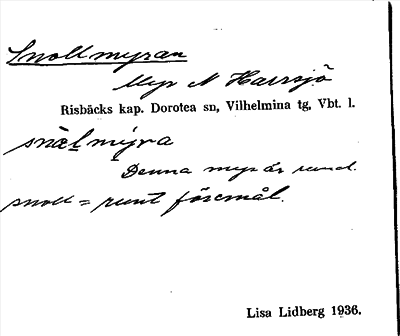 Snollmyran
Myr N Harrsjö
Risbäcks kap. Dorotea sn, Vilhelmina tg, Vbt. l.
snɶlmy̨ra
Denna myr är rund.
snoll = runt föremål.
Lisa Lidberg 1936.